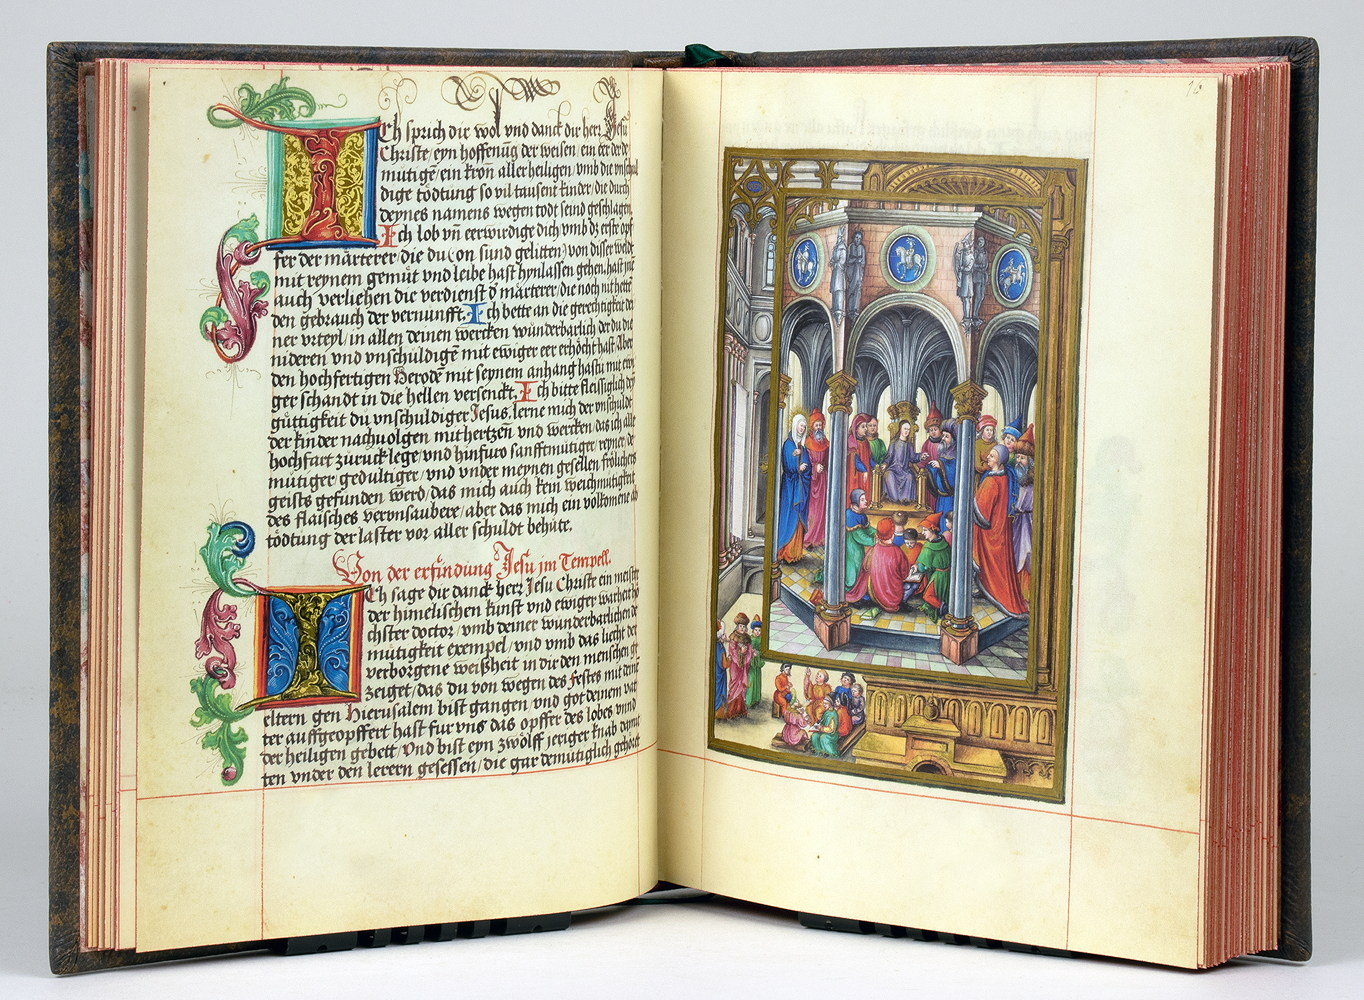 Ich sprich dir wol vnd danck dir herr Jesu
Christe/ eyn hoffenūg der weisen/ ein eer der de
mütigē/ ein kron aller heiligen/ vmb die vnschul
dige tödtung so vil tausent kinder/ die durch
deynes namens wegen todt seind geschlagen.
Ich lob vn̄ eerwirdige dich vmb dz erste opf
fer der märterer/ die du on sünd gelitten/ von disser weldt
mit reynem gemüt vnd leibe hast hynlassen gehen. hast
auch verliehen die verdienst d märterer/ die noch nit hette
den gebrauch der vernunfft. Ich bette an die gerechtigkeit dei
ner vrteyl/ in allen deinen wercken wunderbarlich der du die
nideren vnd vnschuldigē mit ewiger eer erhöcht hast. Aber
den hochfertigen Herodē mit seynem anhang hastu mit ewi
ger schandt in die hellen versenckt. Ich bitte fleissiglich deyn
güttigkeit du vnschuldiger Jesus. lerne mich der vnschuld
der kinder nachuolgen mit hertzen vnd wercken/ das ich alle
hochfart zuruck lege/ vnd hinfuro sanfftmütiger/ reyner/ de
mütiger/ gedultiger/ vnd vnder meynen gesellen frölichers
geists gefunden werd/ das mich auch kein weichmütigkeit
des flaisches verunsaubere/ aber das mich ein volkomene ab
tödtung der laster vor aller schuldt behüte.
Von der erfindung Jesu jm Tempell.
Ich sage die danck herr Jesu Christe ein meister
der himelischen kunst vnd ewiger warheit hö
chster doctor/ vmb deiner wunderbarlichen de
mütigkeit exempel/ vnd vmb das liecht der
verborgene weißheit in dir den menschen ge
zeiget/ das du von wegen des festes mit deinē
eltern gen Hierusalem bist gangen/ vnd got deinem vat
ter auffgeopffert hast fur vns das opffer des lobes vnnd
der heiligen gebett/ Vnd bist eyn zwölff jeriger knab damit
ten vnder den lerern gesessen/ die gar demutiglich gehöret
16